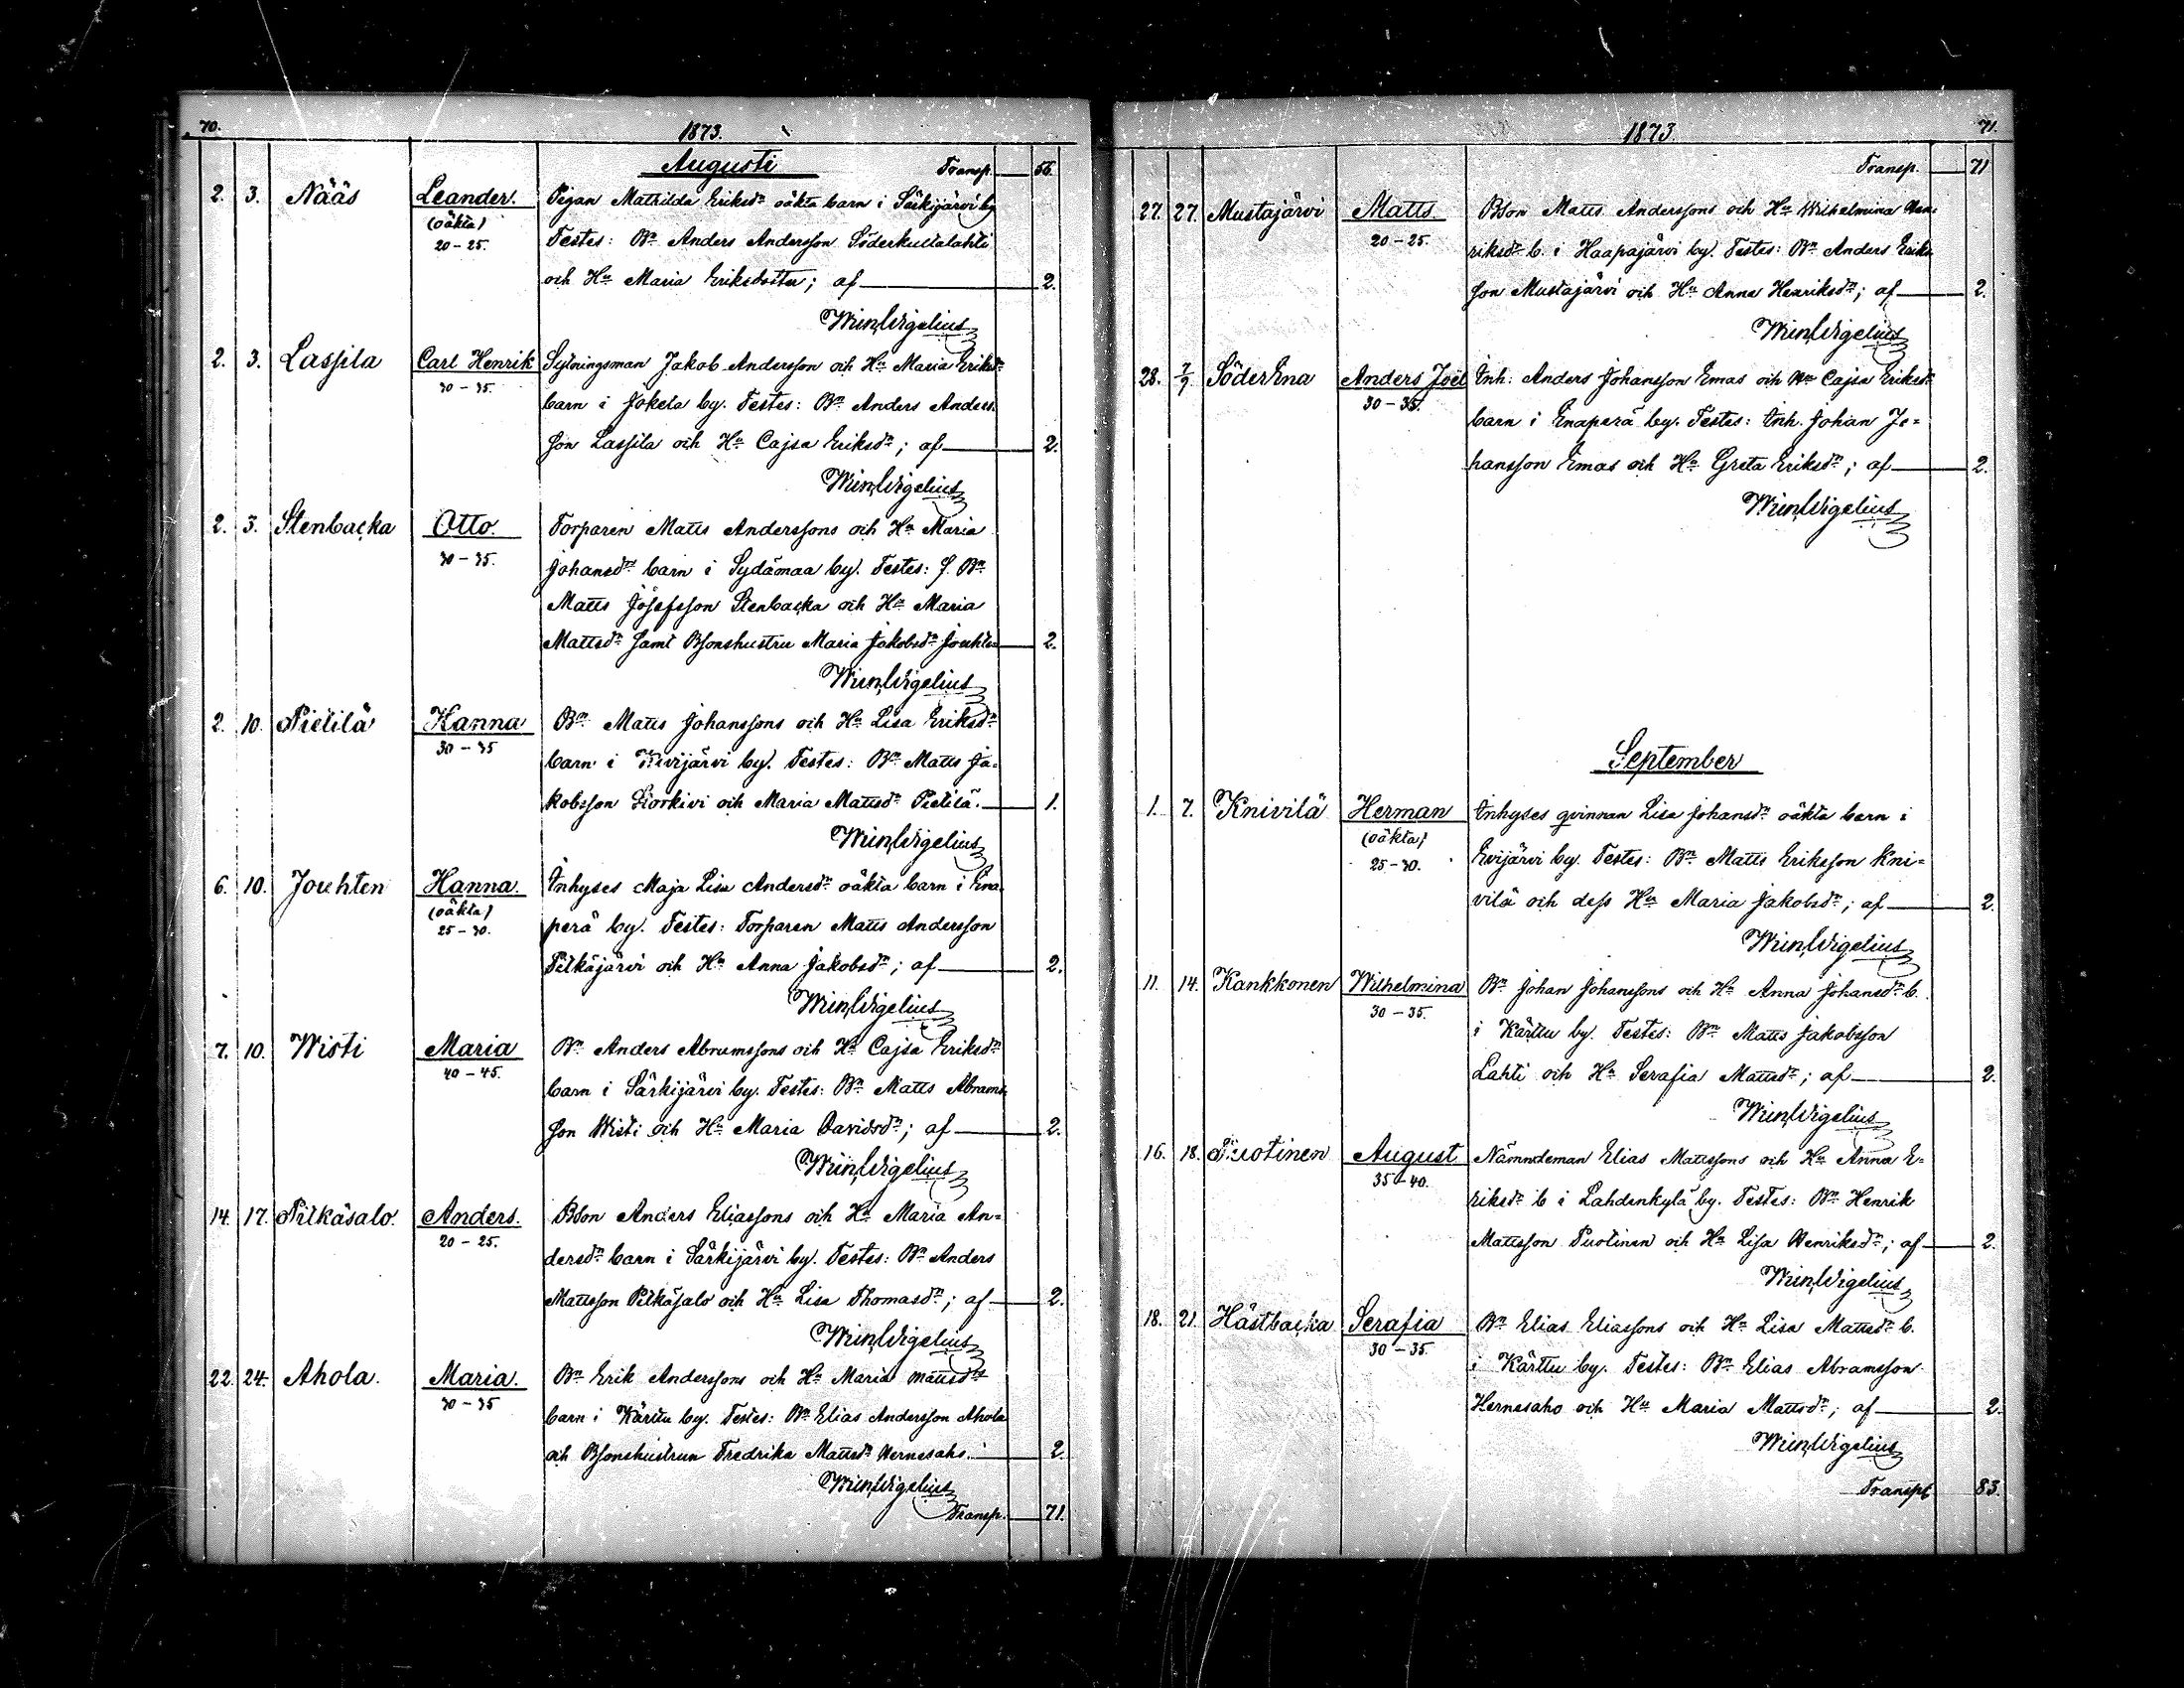 70.
1873.
Augusti
Transp. 56.
2. 3. Nääs Leander. Pigan Mathilda Eriksdr oäkta barn i Särkijärvi by
(oäkta)
20-25. Testes: Bn Anders Andersson Söderkultalahti
och Hu Maria Eriksdotter; af 2.
Wm Wigelius
2. 3. Lassila Carl Henrik Sytningsman Jakob Andersson och Hu Maria Eriksdr
30-35. barn i Jokela by. Testes: Bn Anders Anders-
son Lassila och Hu Cajsa Eriksdr; af 2.
Wm Wigelius
2. 3. Stenbacka Otto. Torparen Matts Anderssons och Hu Maria
30-35. Johansdr barn i Sydämaa by. Testes: f. Bn
Matts Josefsson Stenbacka och Hu Maria
Mattsdr samt Bsonshustru Maria Jakobsdr Jouhten 2.
Wm Wigelius
2. 10. Pietilä Hanna Bn Matts Johanssons och Hu Lisa Eriksdr
30-35 barn i Kivijärvi by. Testes: Bn Matts Ja-
kobsson Kiorkivi och Maria Mattsdr Pietilä. 1.
Wm Wigelius
6. 10. Jouhten Hanna. Inhyses Maja Lisa Andersdr oäkta barn i Ena-
(oäkta)
25-30. perä by. Testes: Torparen Matts Andersson
Pitkäjärvi och Hu Anna Jakobsdr; af 2.
Wm Wigelius
7. 10. Wisti Maria Bn Anders Abramssons och Hu Cajsa Eriksdr
40-45. barn i Särkijärvi by. Testes: Bn Matts Abrams-
son Wisti och Hu Maria Davidsdr; af 2.
Wm Wigelius
14. 17. Pitkäsalo. Anders. Bson Anders Eliassons och Hu Maria An-
20-25. dersdr barn i Särkijärvi by. Testes: Bn Anders
Mattsson Pitkäsalo och Hu Lisa Thomasdr; af 2.
Wm Wigelius
22. 24. Ahola. Maria. Bn Erik Anderssons och Hu Maria Mattsdr
30-35 barn i Kärttu by. Testes: Bn Elias Andersson Ahola
och Bsonshustrun Fredrika Mattsdr Hernesaho. 2
Wm Wigelius
Transp. 71.
1873.
71.
Transp. 71
27. 27. Mustajärvi Matts Bson Matts Anderssons och Hu Wilhelmina Hen-
20-25. riksdr b. i Haapajärvi by. Testes: Bn Anders Eriks-
son Mustajärvi och Hu Anna Henriksdr; af 2.
Wm Wigelius
28. 7/9. SöderEna Anders Joel Inh: Anders Johansson Emas och Hu Cajsa Eriksdr
30-35. barn i Enaperä by. Testes: Inh. Johan Jo-
hansson Emas och Hu Greta Eriksdr; af 2.
Wm Wigelius
September
1. 7. Knivilä Herman Inhyses qvinnan Lisa Johansdr oäkta barn i
(oäkta)
25-30. Evijärvi by. Testes: Bn Matts Eriksson Kni-
vilä och dess Hu Maria Jakobsdr; af 2.
Wm Wigelius
11. 14. Kankkonen Wilhelmina Bn Johan Johanssons och Hu Anna Johansdr b.
30-35. i Kärttu by. Testes: Bn Matts Jakobsson
Lahti och Hu Serafia Mattsdr; af 2.
Wm Wigelius
16. 18. Puotinen August Nämndeman Elias Mattssons och Hu Anna E-
35-40. riksdr b i Lahdenkylä by. Testes: Bn Henrik
Mattsson Puotinen och Hu Lisa Henriksdr; af 2.
Wm Wigelius
18. 21. Hästbacka Serafia Bn Elias Eliassons och Hu Lisa Mattsdr b.
30-35. i Kärttu by. Testes: Bn Elias Abramsson
Hernesaho och Hu Maria Mattsdr; af 2.
Wm Wigelius
Transpt 83.